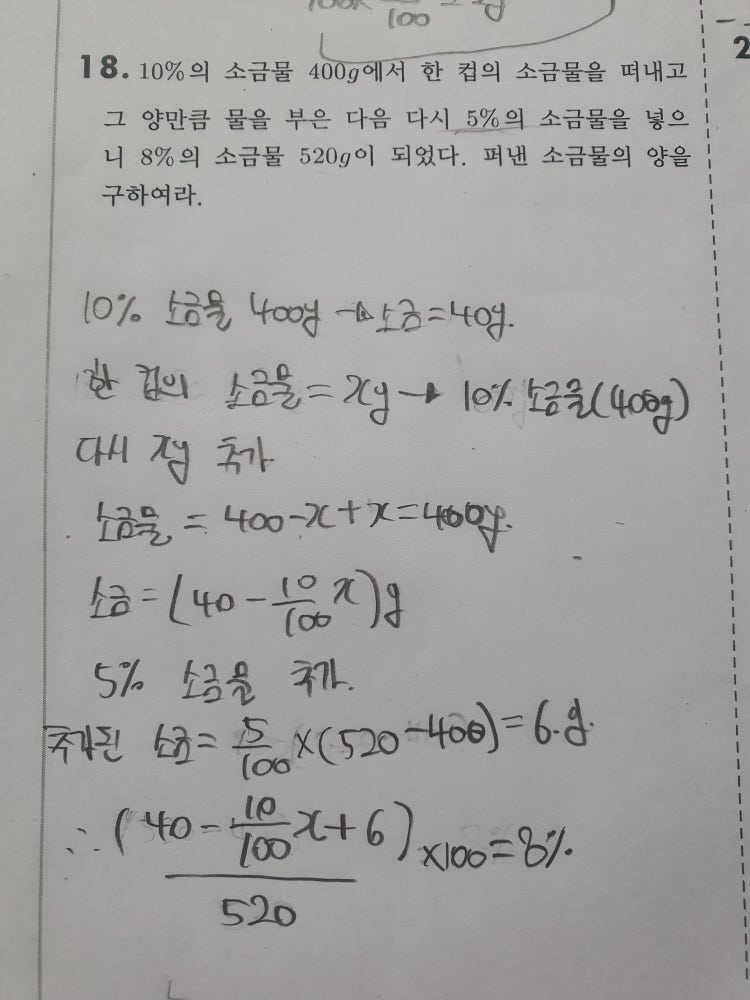 18. 10%의 소금물 400g에서 한 컵의 소금물을 떠내고
그 양만큼 물을 부은 다음 다시 5%의 소금물을 넣으
니 8%의 소금물 520g이 되었다. 퍼낸 소금물의 양을
구하여라.
2
10% 소금물 400g → 소금=40g.
한 컵의 소금물 = xg → 10% 소금물(400g)
다시 xg 추가
소금물 = 400-x+x=400g.
소금 = (40 - 10/100 x)g
5% 소금물 추가.
추가된 소금 = 5/100 ×(520-400)=6.g.
∴ (40 - 10/100 x + 6)/520 ×100=8%